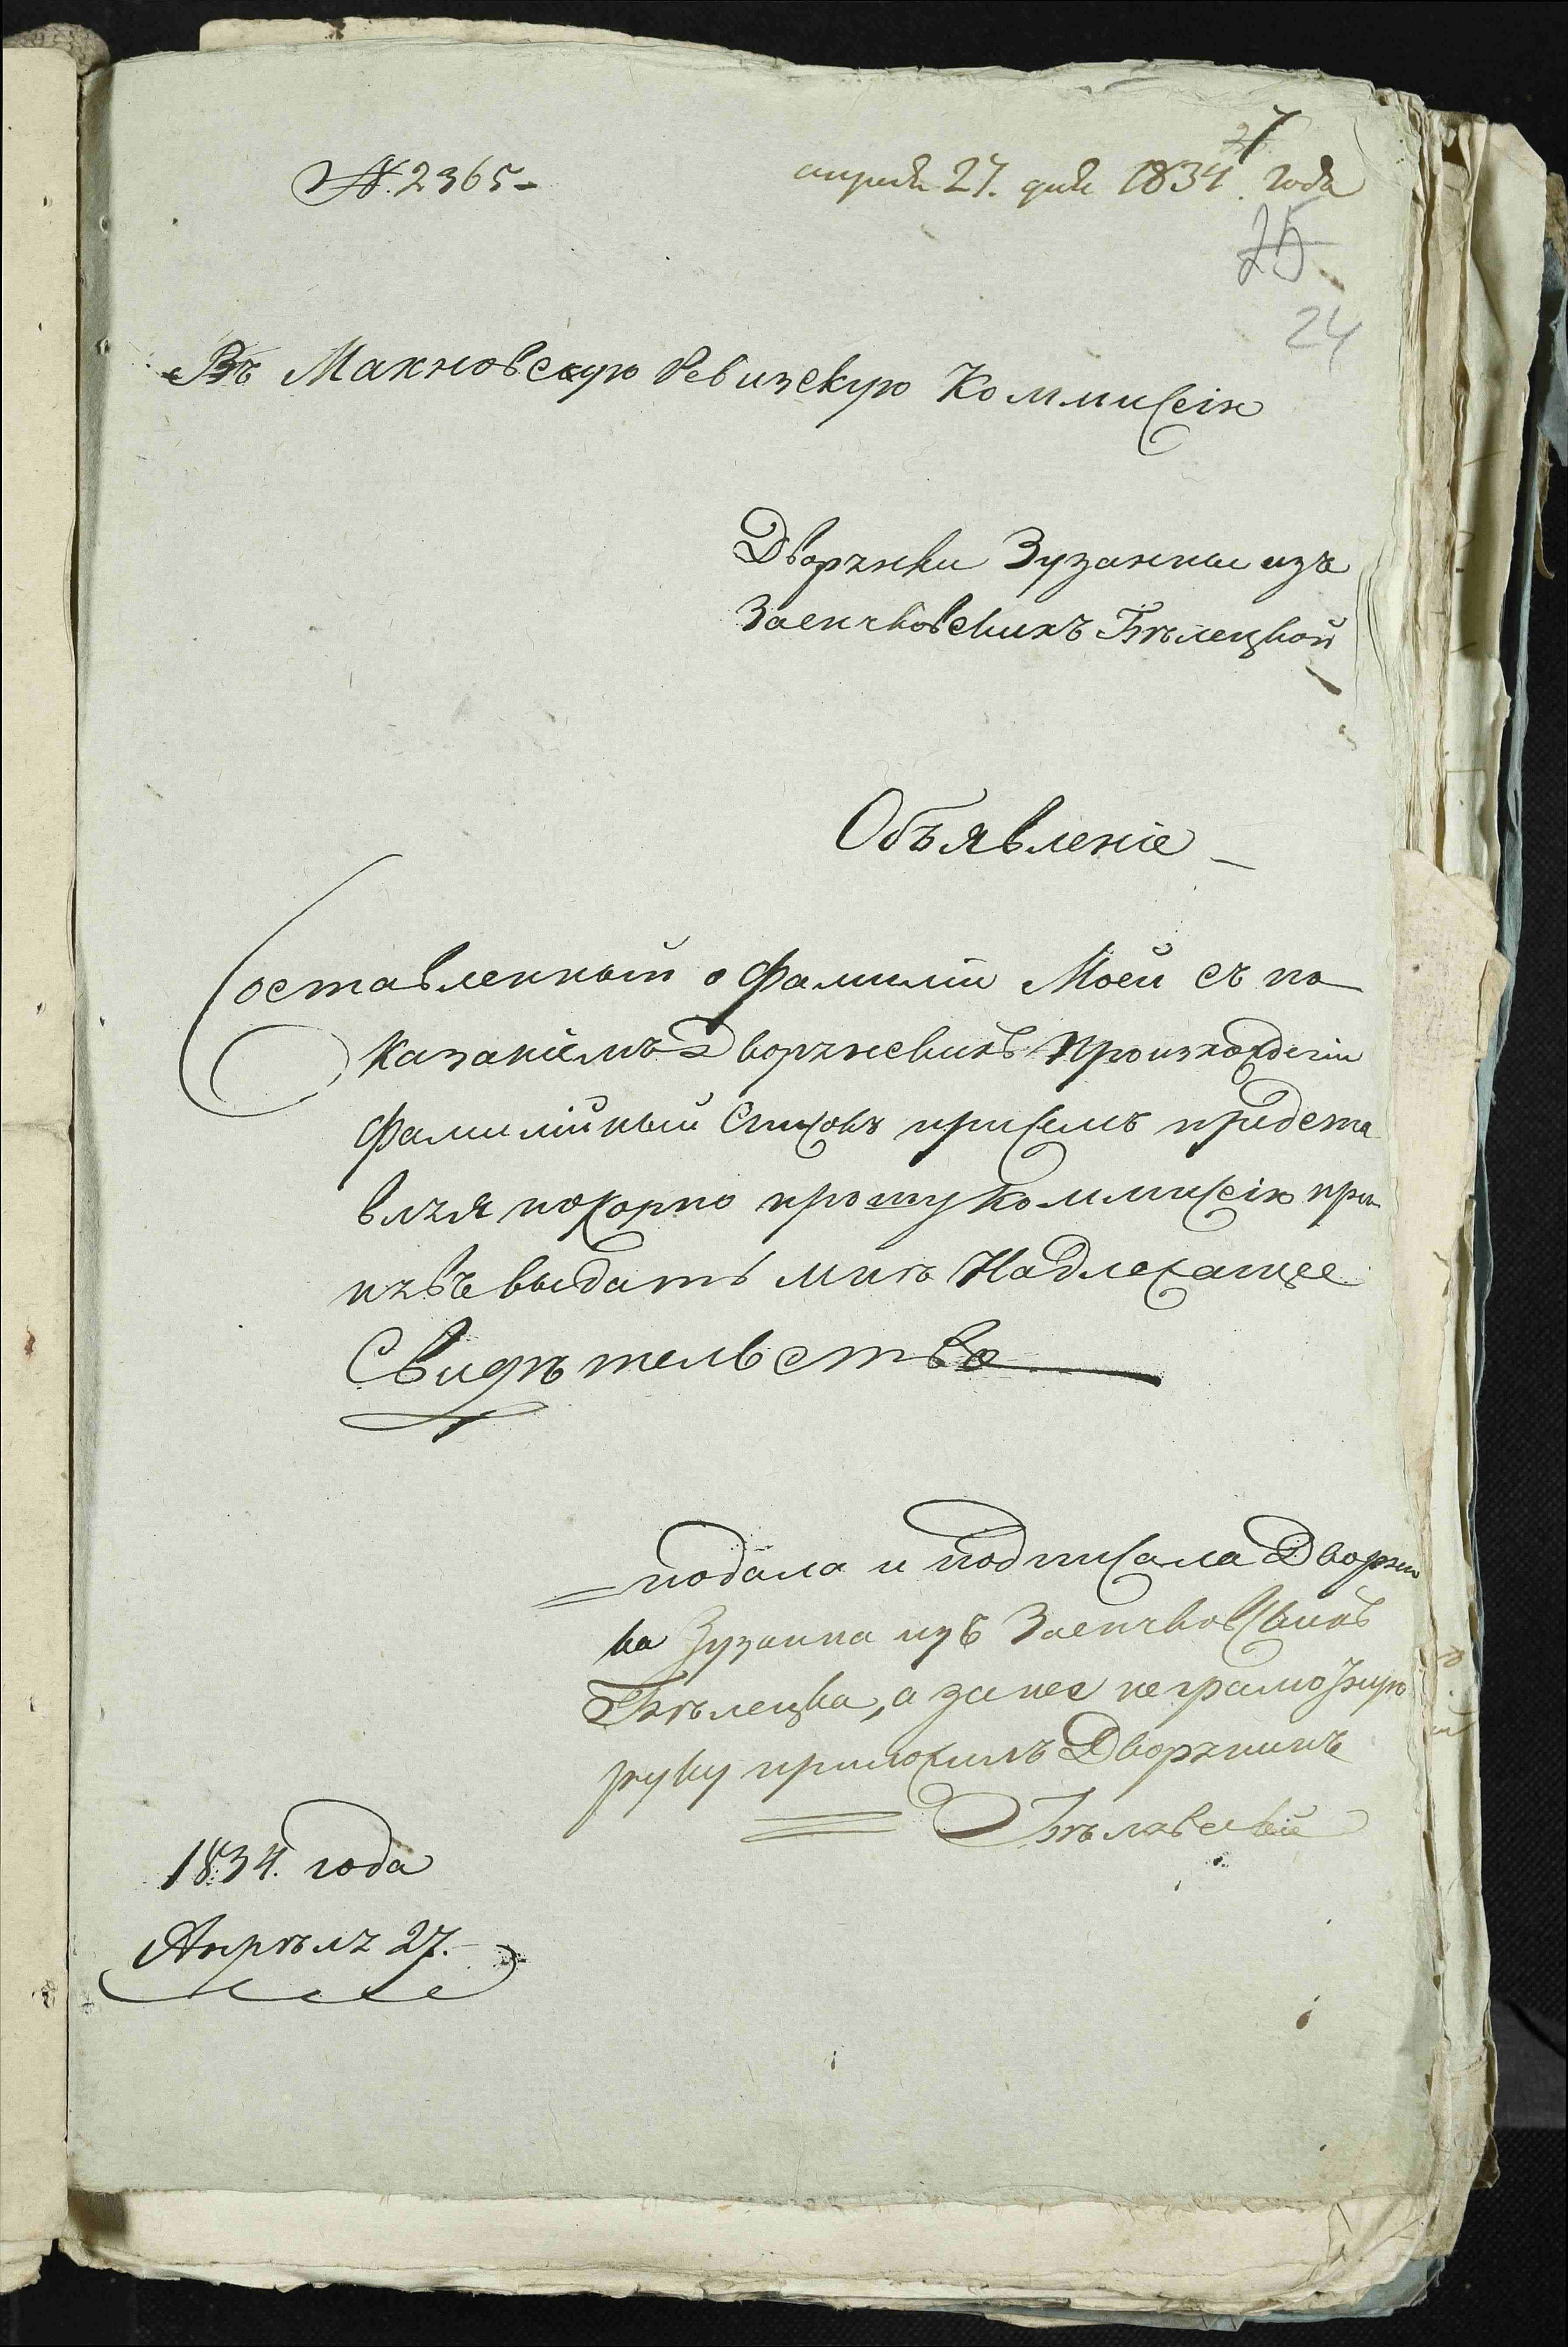 27
№ 2365-
апреля 27. дня 1834. года
25
24
Въ Махновскую Ревизскую Коммисію
Дворянки Зузанны изъ
Заенчковскихъ Бѣлецкой
Объявленіе
Составленный о Фамиліи Моей съ по
казаніемъ Дворянскихъ произхожденіи
Фамилійный Списокъ присемъ предста
вляя покорно прошу Коммисію при
нявъ выдать мнѣ Надлежащее
Свидѣтельство
подала и подписала Дворян
ка Зузанна изъ Заенчковскихъ
Бѣлецка, а за нее неграмотную
руку приложилъ Дворянинъ
Бѣлявскій
1834. года
Апрѣля 27.